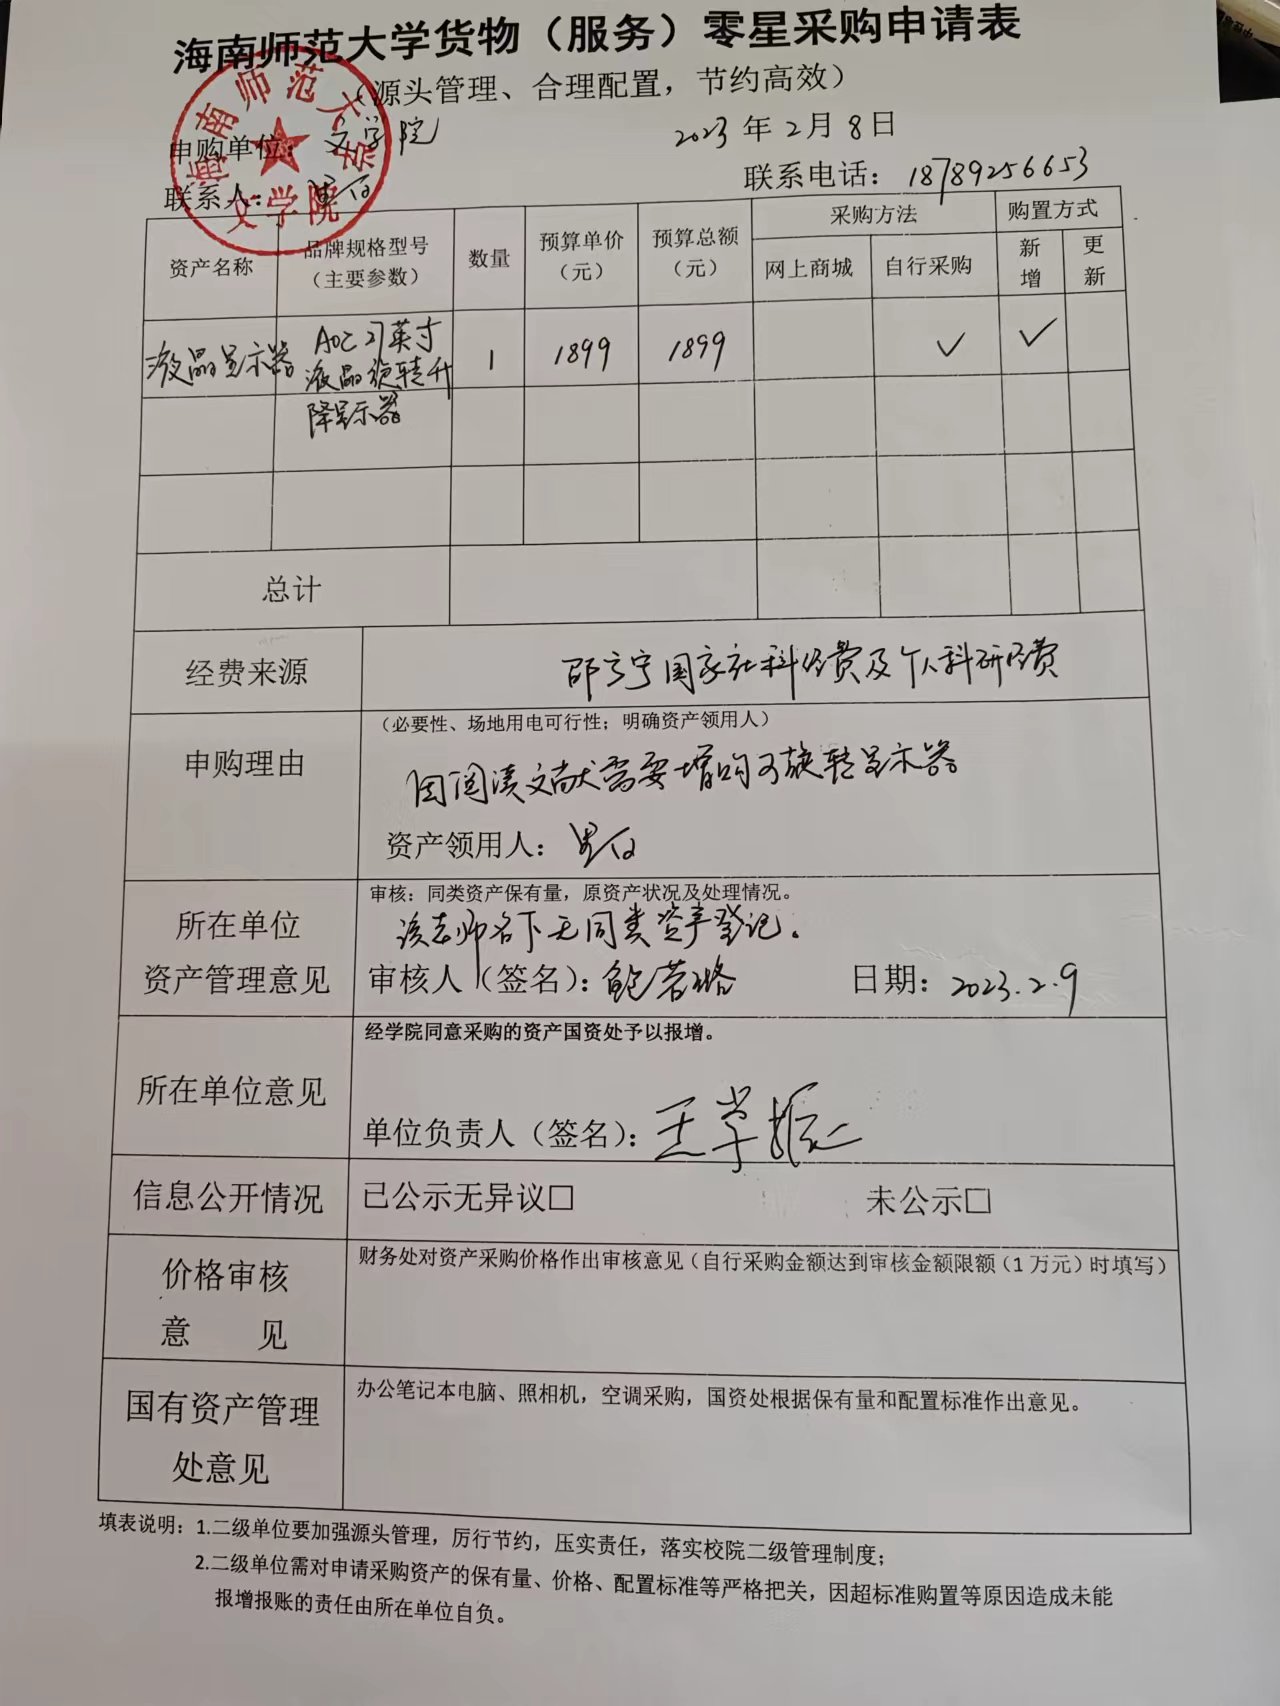 海南师范大学货物（服务）零星采购申请表
（源头管理、合理配置，节约高效）
申购单位：文学院 2023年2月8日
联系人： 联系电话：18789256653
海南师范大学
文学院
资产名称 品牌规格型号（主要参数） 数量 预算单价（元） 预算总额（元） 采购方法 购置方式
网上商城 自行采购 新增 更新
液晶显示器 AOC 27英寸 1 1899 1899 ✓ ✓
液晶旋转升
降显示器
总计
经费来源 邵宁国家社科经费及个人科研经费
申购理由 （必要性、场地用电可行性；明确资产领用人）
因阅读文献需要增购可旋转显示器
资产领用人：
所在单位资产管理意见 审核：同类资产保有量，原资产状况及处理情况。
该老师名下无同类资产登记。
审核人（签名）：鲍 日期：2023.2.9
所在单位意见 经学院同意采购的资产国资处予以报增。
单位负责人（签名）：王学振
信息公开情况 已公示无异议□ 未公示□
价格审核意见 财务处对资产采购价格作出审核意见（自行采购金额达到审核金额限额（1万元）时填写）
国有资产管理处意见 办公笔记本电脑、照相机，空调采购，国资处根据保有量和配置标准作出意见。
填表说明：1.二级单位要加强源头管理，厉行节约，压实责任，落实校院二级管理制度；
2.二级单位需对申请采购资产的保有量、价格、配置标准等严格把关，因超标准购置等原因造成未能
报增报账的责任由所在单位自负。